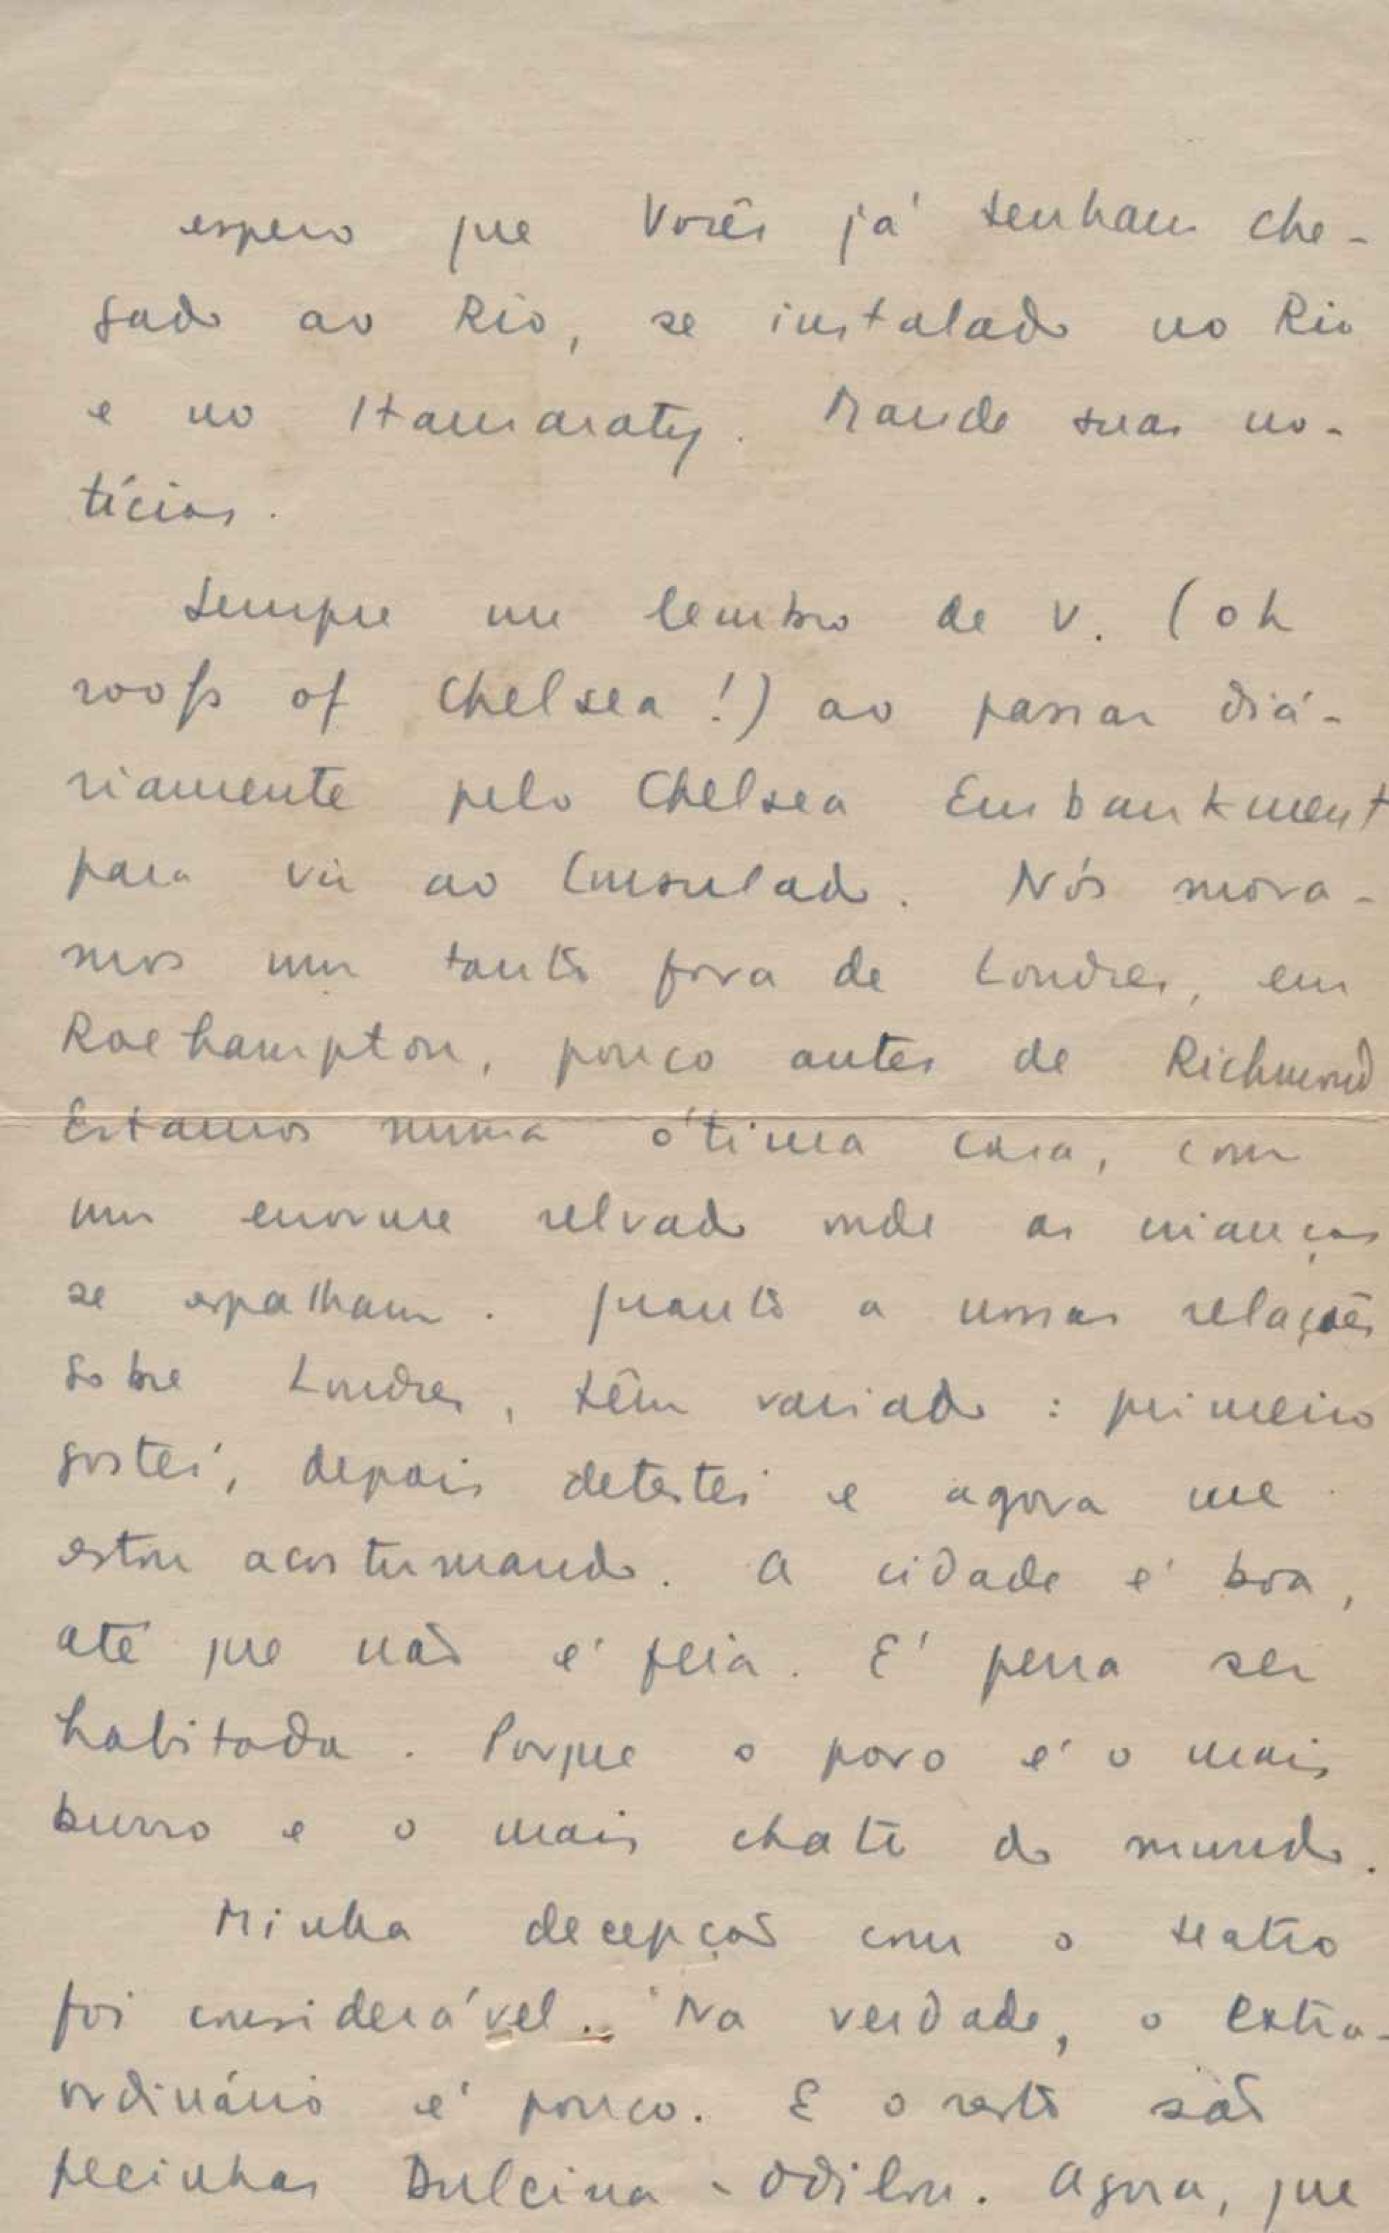 espero que Vocês já tenham che-
gado ao Rio, se instalado no Rio
e no Itamaraty. Mande suas no-
tícias.
Sempre me lembro de V. (oh
roofs of Chelsea!) ao passar diá-
riamente pelo Chelsea Embankment
para vir ao Consulado. Nós mora-
mos um tanto fora de Londres, em
Roehampton, pouco antes de Richmond
Estamos numa ótima casa, com
um enorme relvado onde as crianças
se espalham. Quanto a nossas relações
sobre Londres, têm variado: primeiro
gostei, depois detestei e agora me
estou acostumando. A cidade é boa,
até que não é feia. É pena ser
habitada. Porque o povo é o mais
burro e o mais chato do mundo.
Minha decepção com o teatro
foi considerável. Na verdade, o extra-
ordinário é pouco. E o resto são
pecinhas Dulcina-Odilon. Agora, que